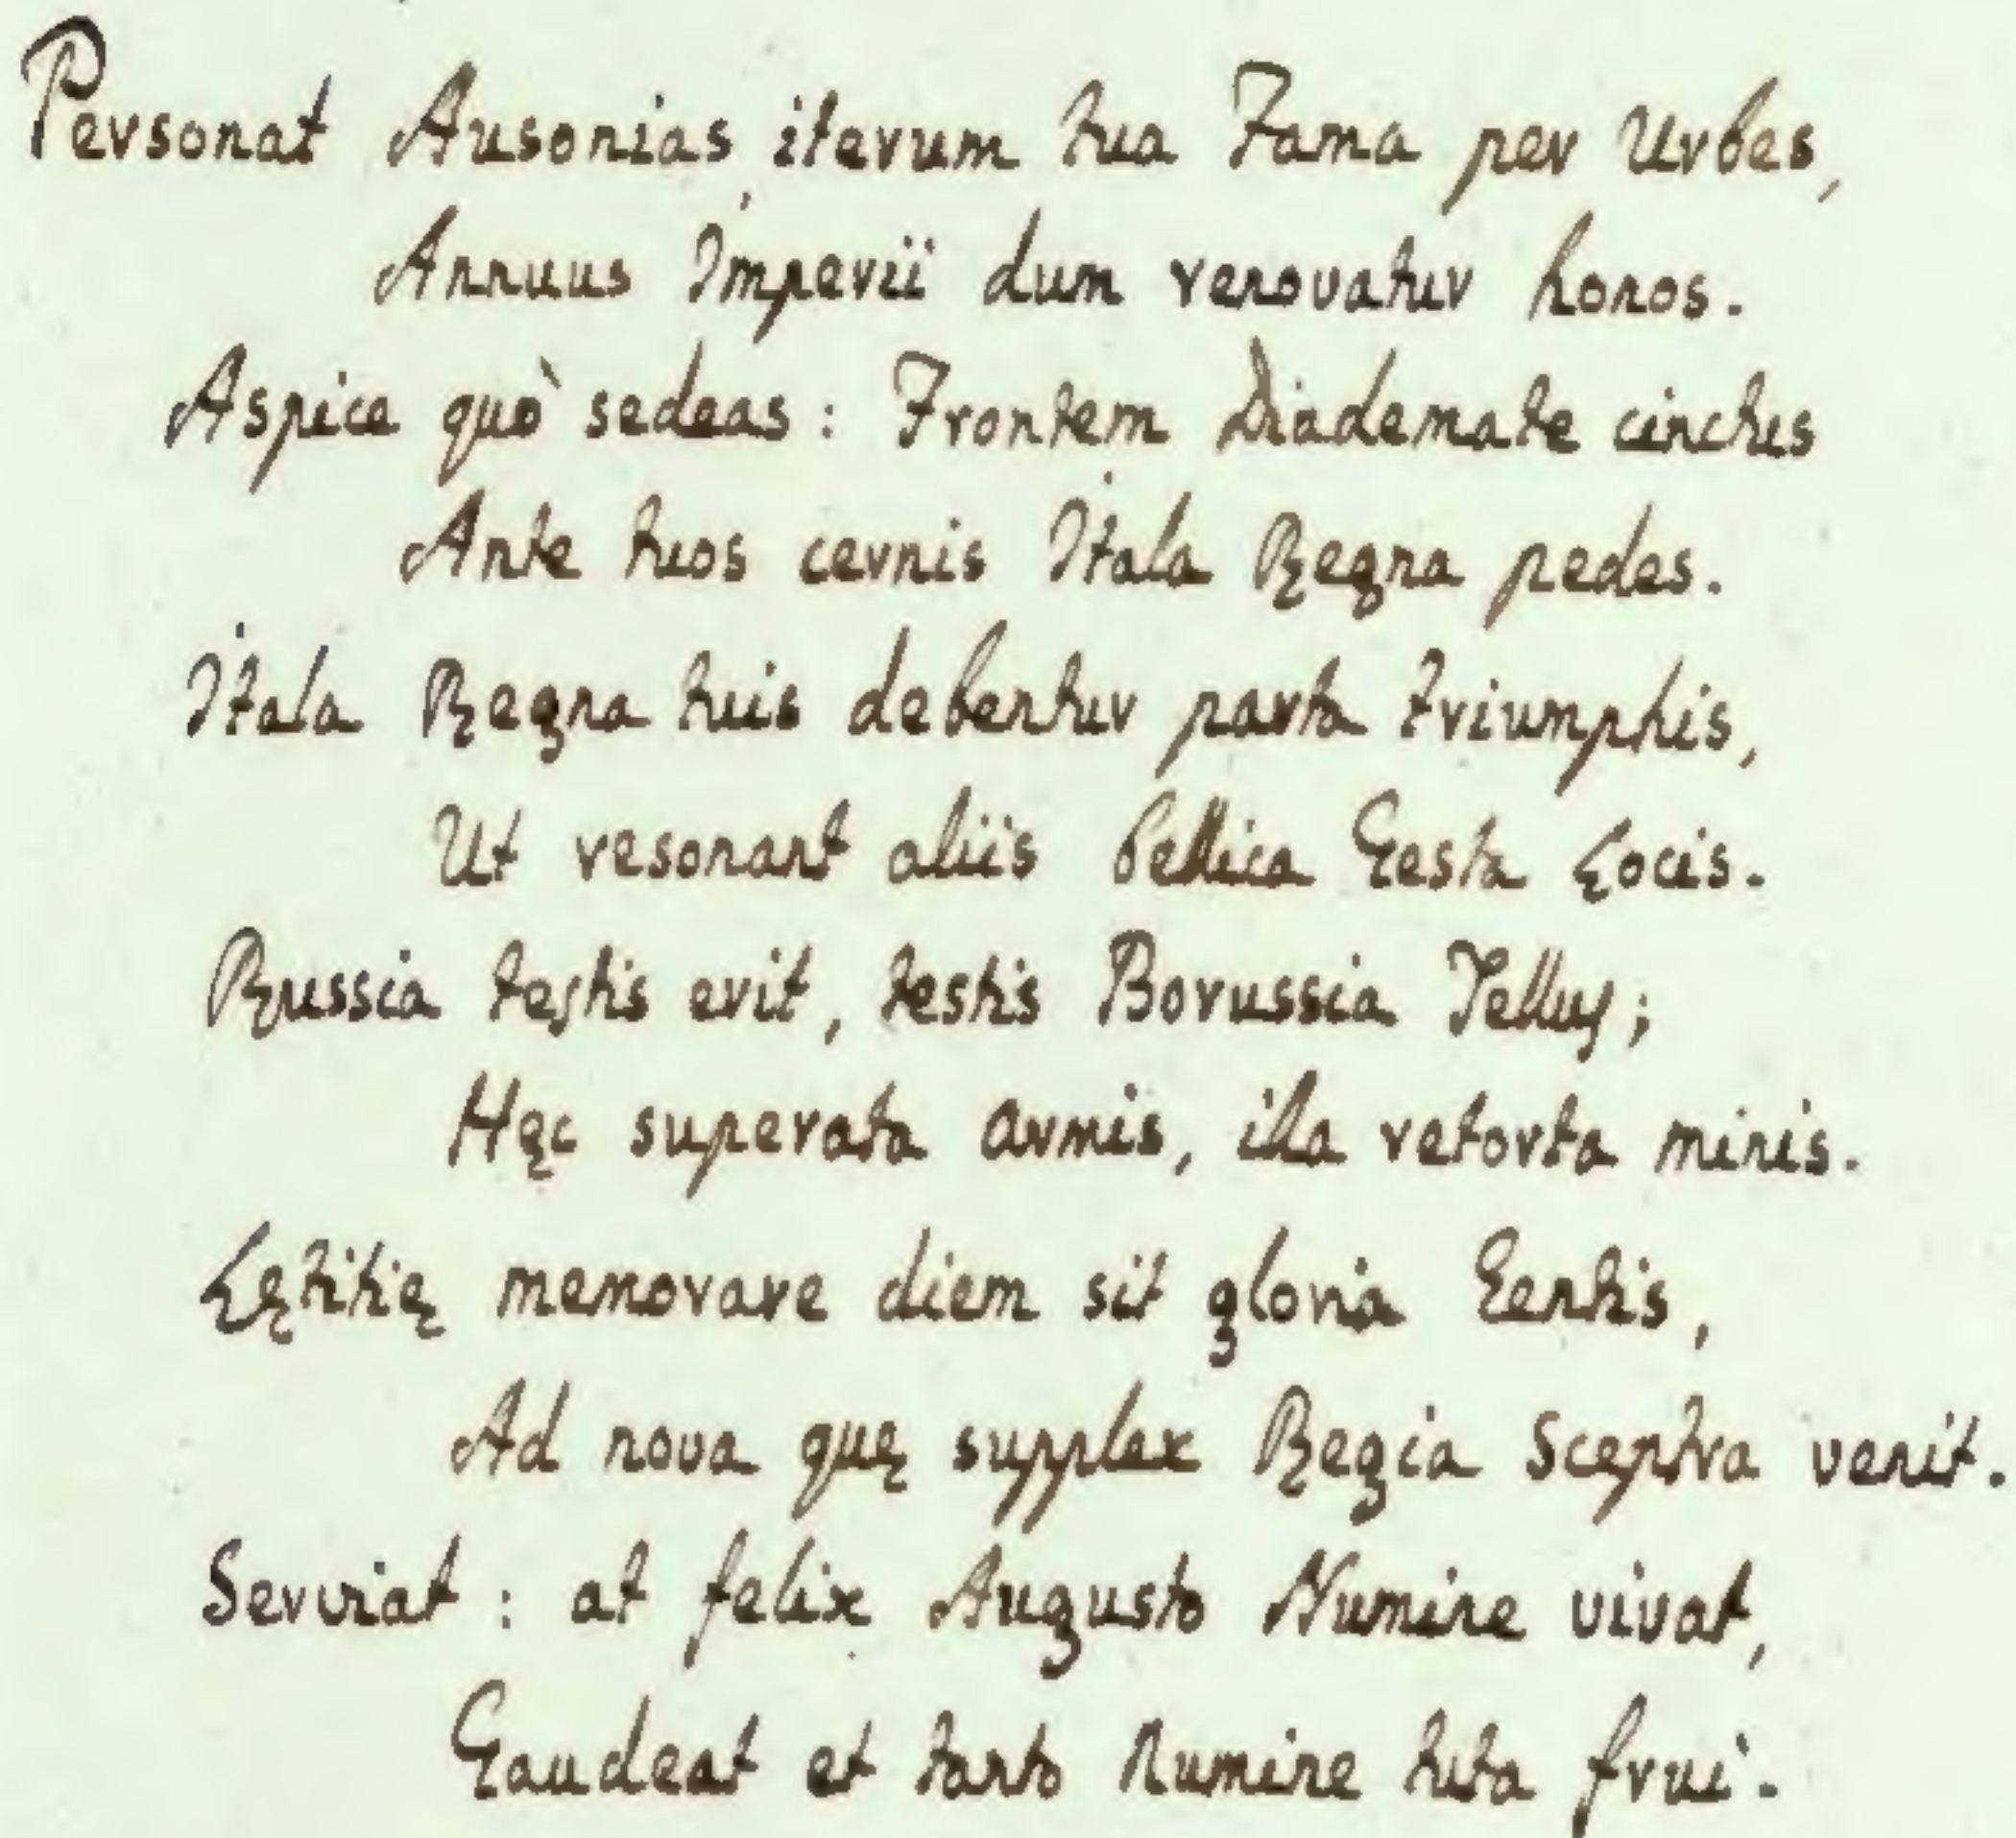 Personat Ausonias iterum tua Fama per Urbes,
Annuus Imperii dum renovatur honos.
Aspice quò sedeas: Frontem Diademate cinctus
Ante tuos cernis Itala Regna pedes.
Itala Regna tuis debentur parta triumphis,
Ut resonant aliis bellica Gesta Locis.
Russia testis erit, testis Borussia Tellus;
Hęc superata armis, illa retorta minis.
Lętitię memorare diem sit gloria Gentis,
Ad nova quę supplex Regia Sceptra venit.
Serviat: at felix Augusto Numine vivat,
Gaudeat et tanto Numine tuta frui.